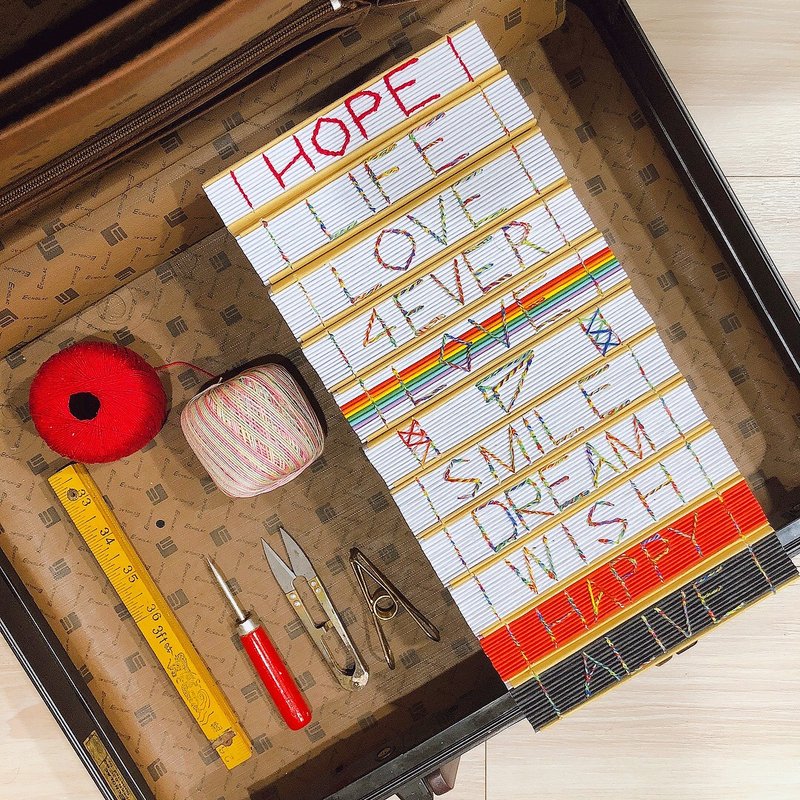 HOPE
LIFE
LOVE
4EVER
LOVE
SMILE
DREAM
WISH
HAPPY
ALIVE
33
34
35
36
3ft
ECHOLAC